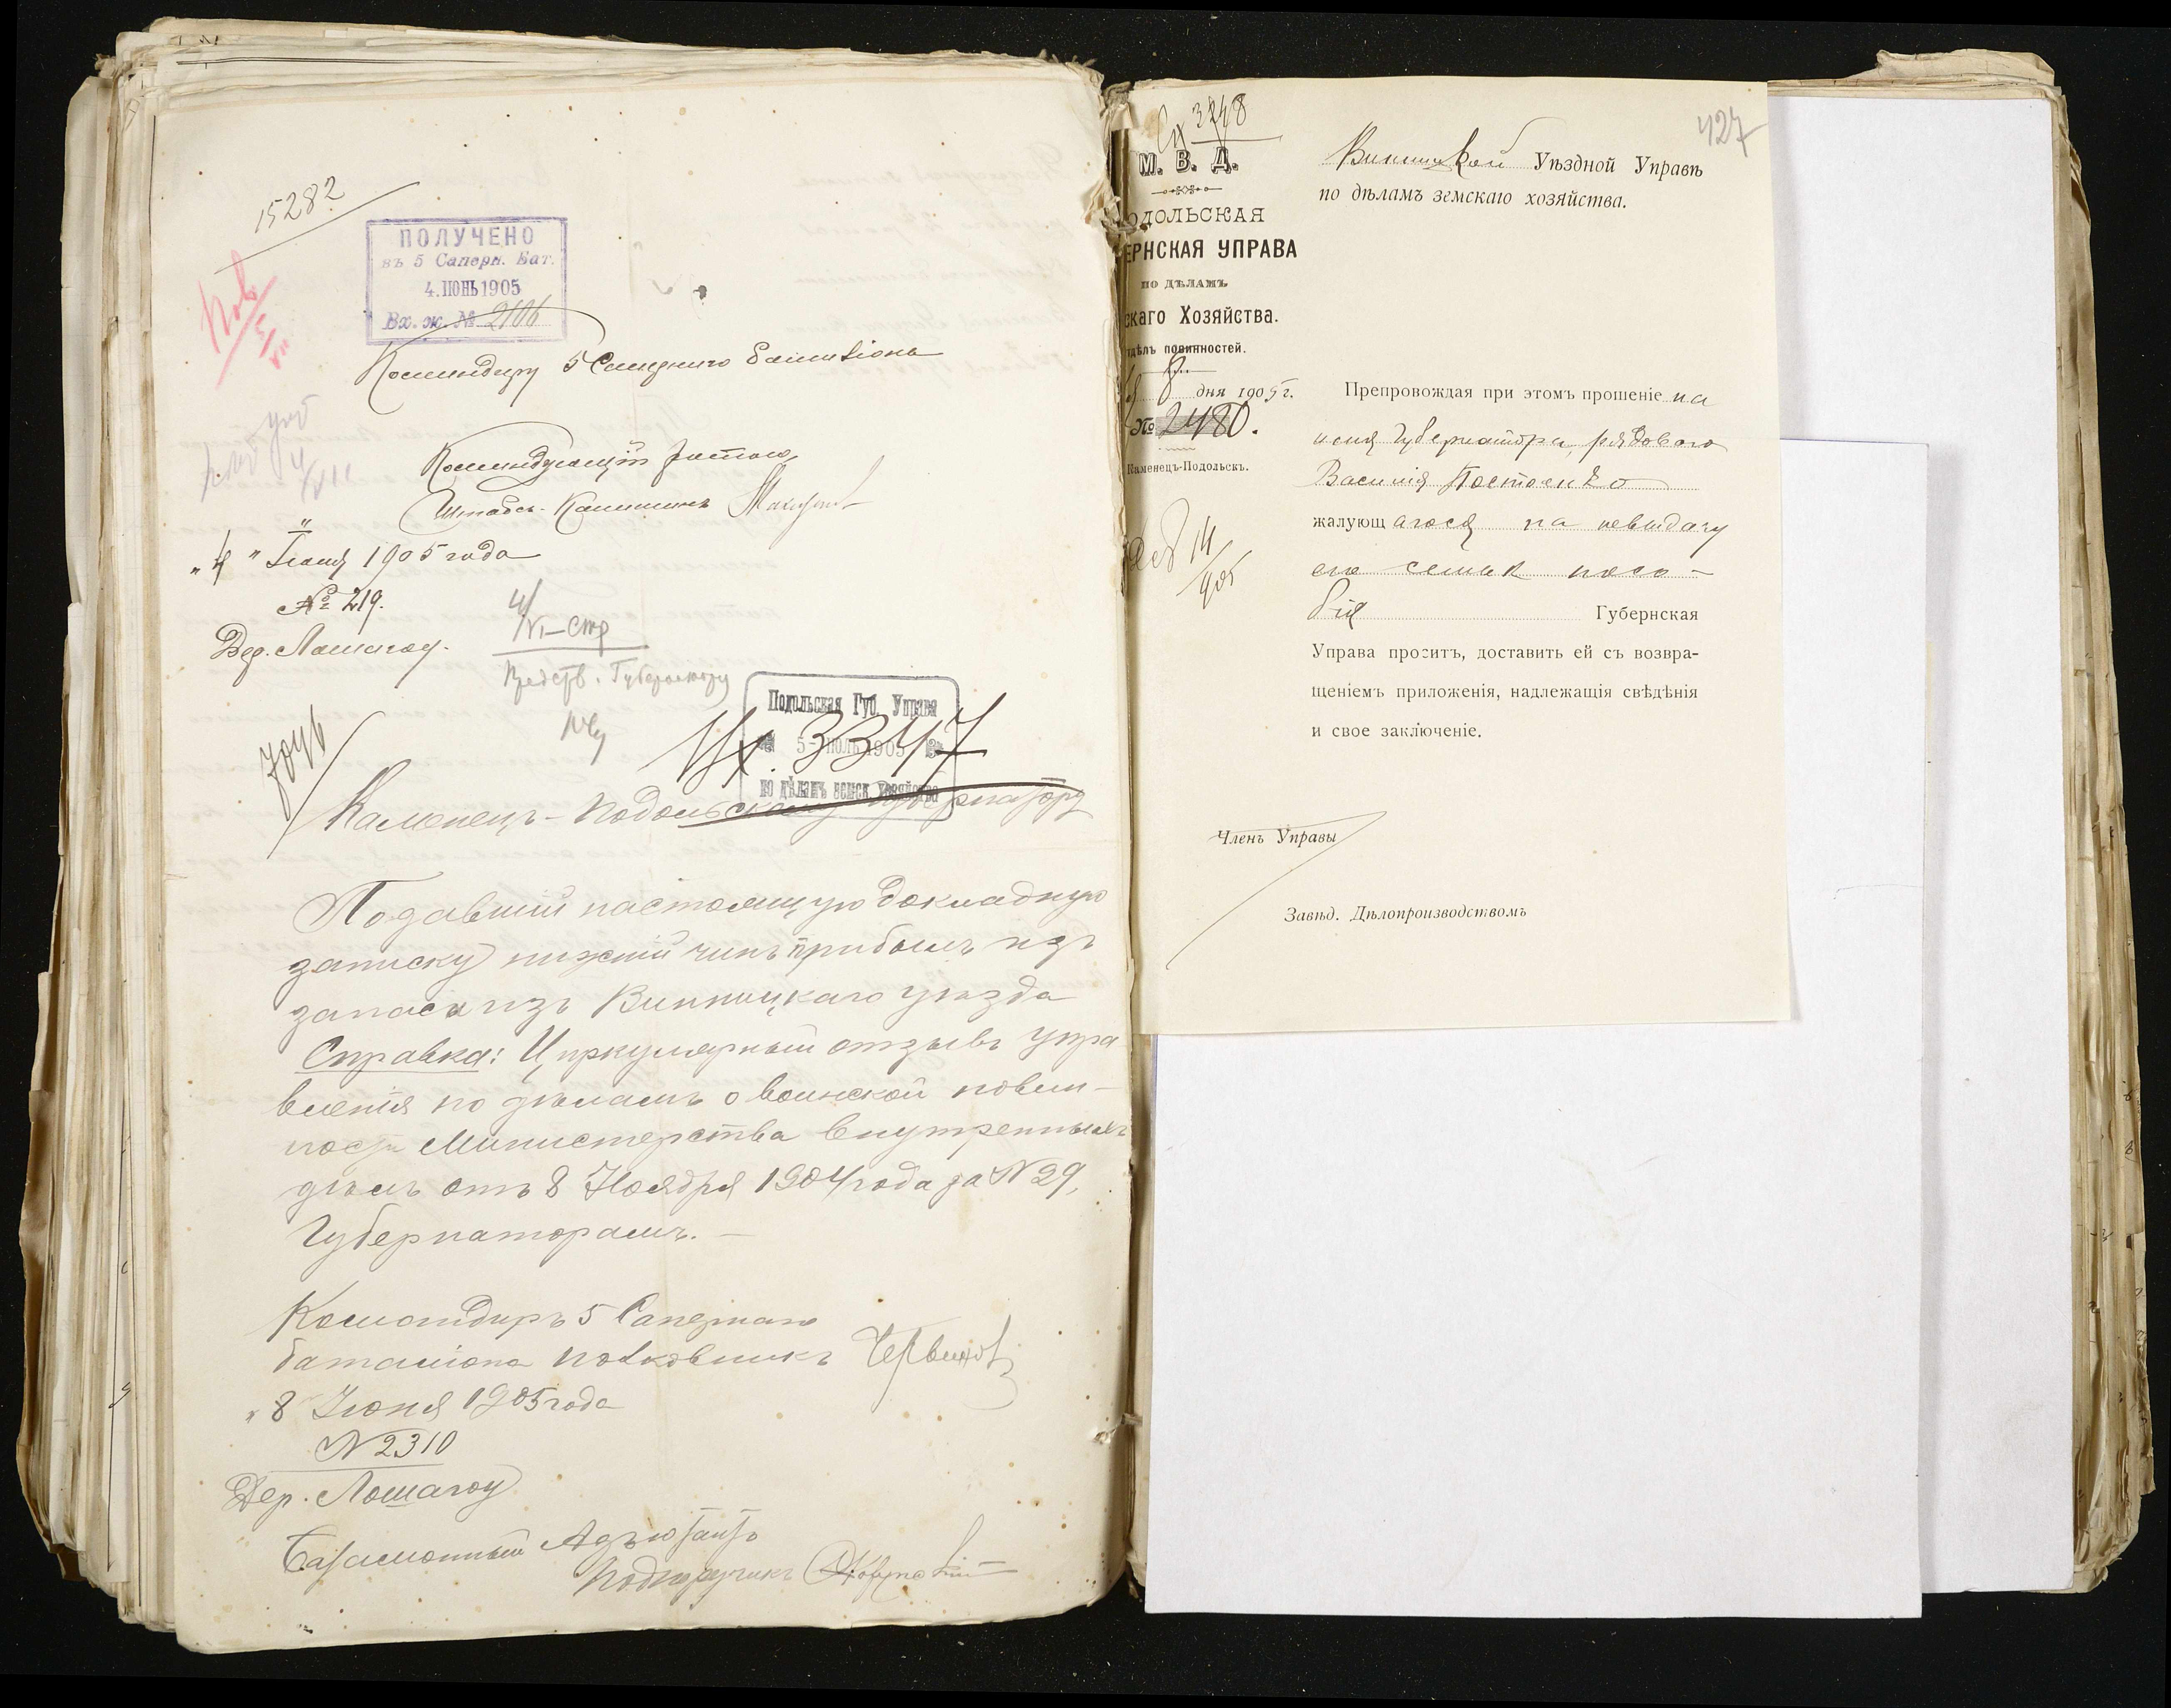 15282
ПОЛУЧЕНО
въ 5 Саперн. Бат.
4. ІЮНЬ 1905
Вх. ж. № 2106
Командиру 5 Сапернаго баталіона
Командующій ротою,
Штабсъ-Капитанъ
"4" Іюня 1905 года
№ 219.
Дер. Лошагоу.
4/VI
Губернатору
Подольская Губ. Управа
5 - ІЮЛЬ 1905
по дѣламъ земск. хозяйства
Вх. 3347
7046
Каменецъ-Подольскому Губернатору
Подавшій настоящую докладную
записку нижній чинъ прибылъ изъ
запаса изъ Винницкаго уѣзда
Справка: Циркулярный отзывъ упра
вленія по дѣламъ о воинской повин-
ности Министерства внутреннихъ
дѣлъ отъ 8 Ноября 1904 года за № 29,
Губернаторамъ. —
Командиръ 5 Сапернаго
баталіона полковникъ
"8 Іюня 1905 года
№ 2310
Дер. Лошагоу
Баталіонный Адъютантъ
Подпоручикъ
427
3248
М. В. Д.
ОДОЛЬСКАЯ
ЕРНСКАЯ УПРАВА
ПО ДѢЛАМЪ
скаго Хозяйства.
дѣлъ повинностей.
8 дня 1905 г.
№ 2480.
Каменецъ-Подольскъ.
14
905
Винницкой Уѣздной Управѣ
по дѣламъ земскаго хозяйства.
Препровождая при этомъ прошеніе на
имя Губернатора, рядового
Василія Постоенко
жалующагося на невыдачу
его семьѣ посо-
бія Губернская
Управа проситъ, доставить ей съ возвра-
щеніемъ приложенія, надлежащія свѣдѣнія
и свое заключеніе.
Членъ Управы
Завѣд. Дѣлопроизводствомъ